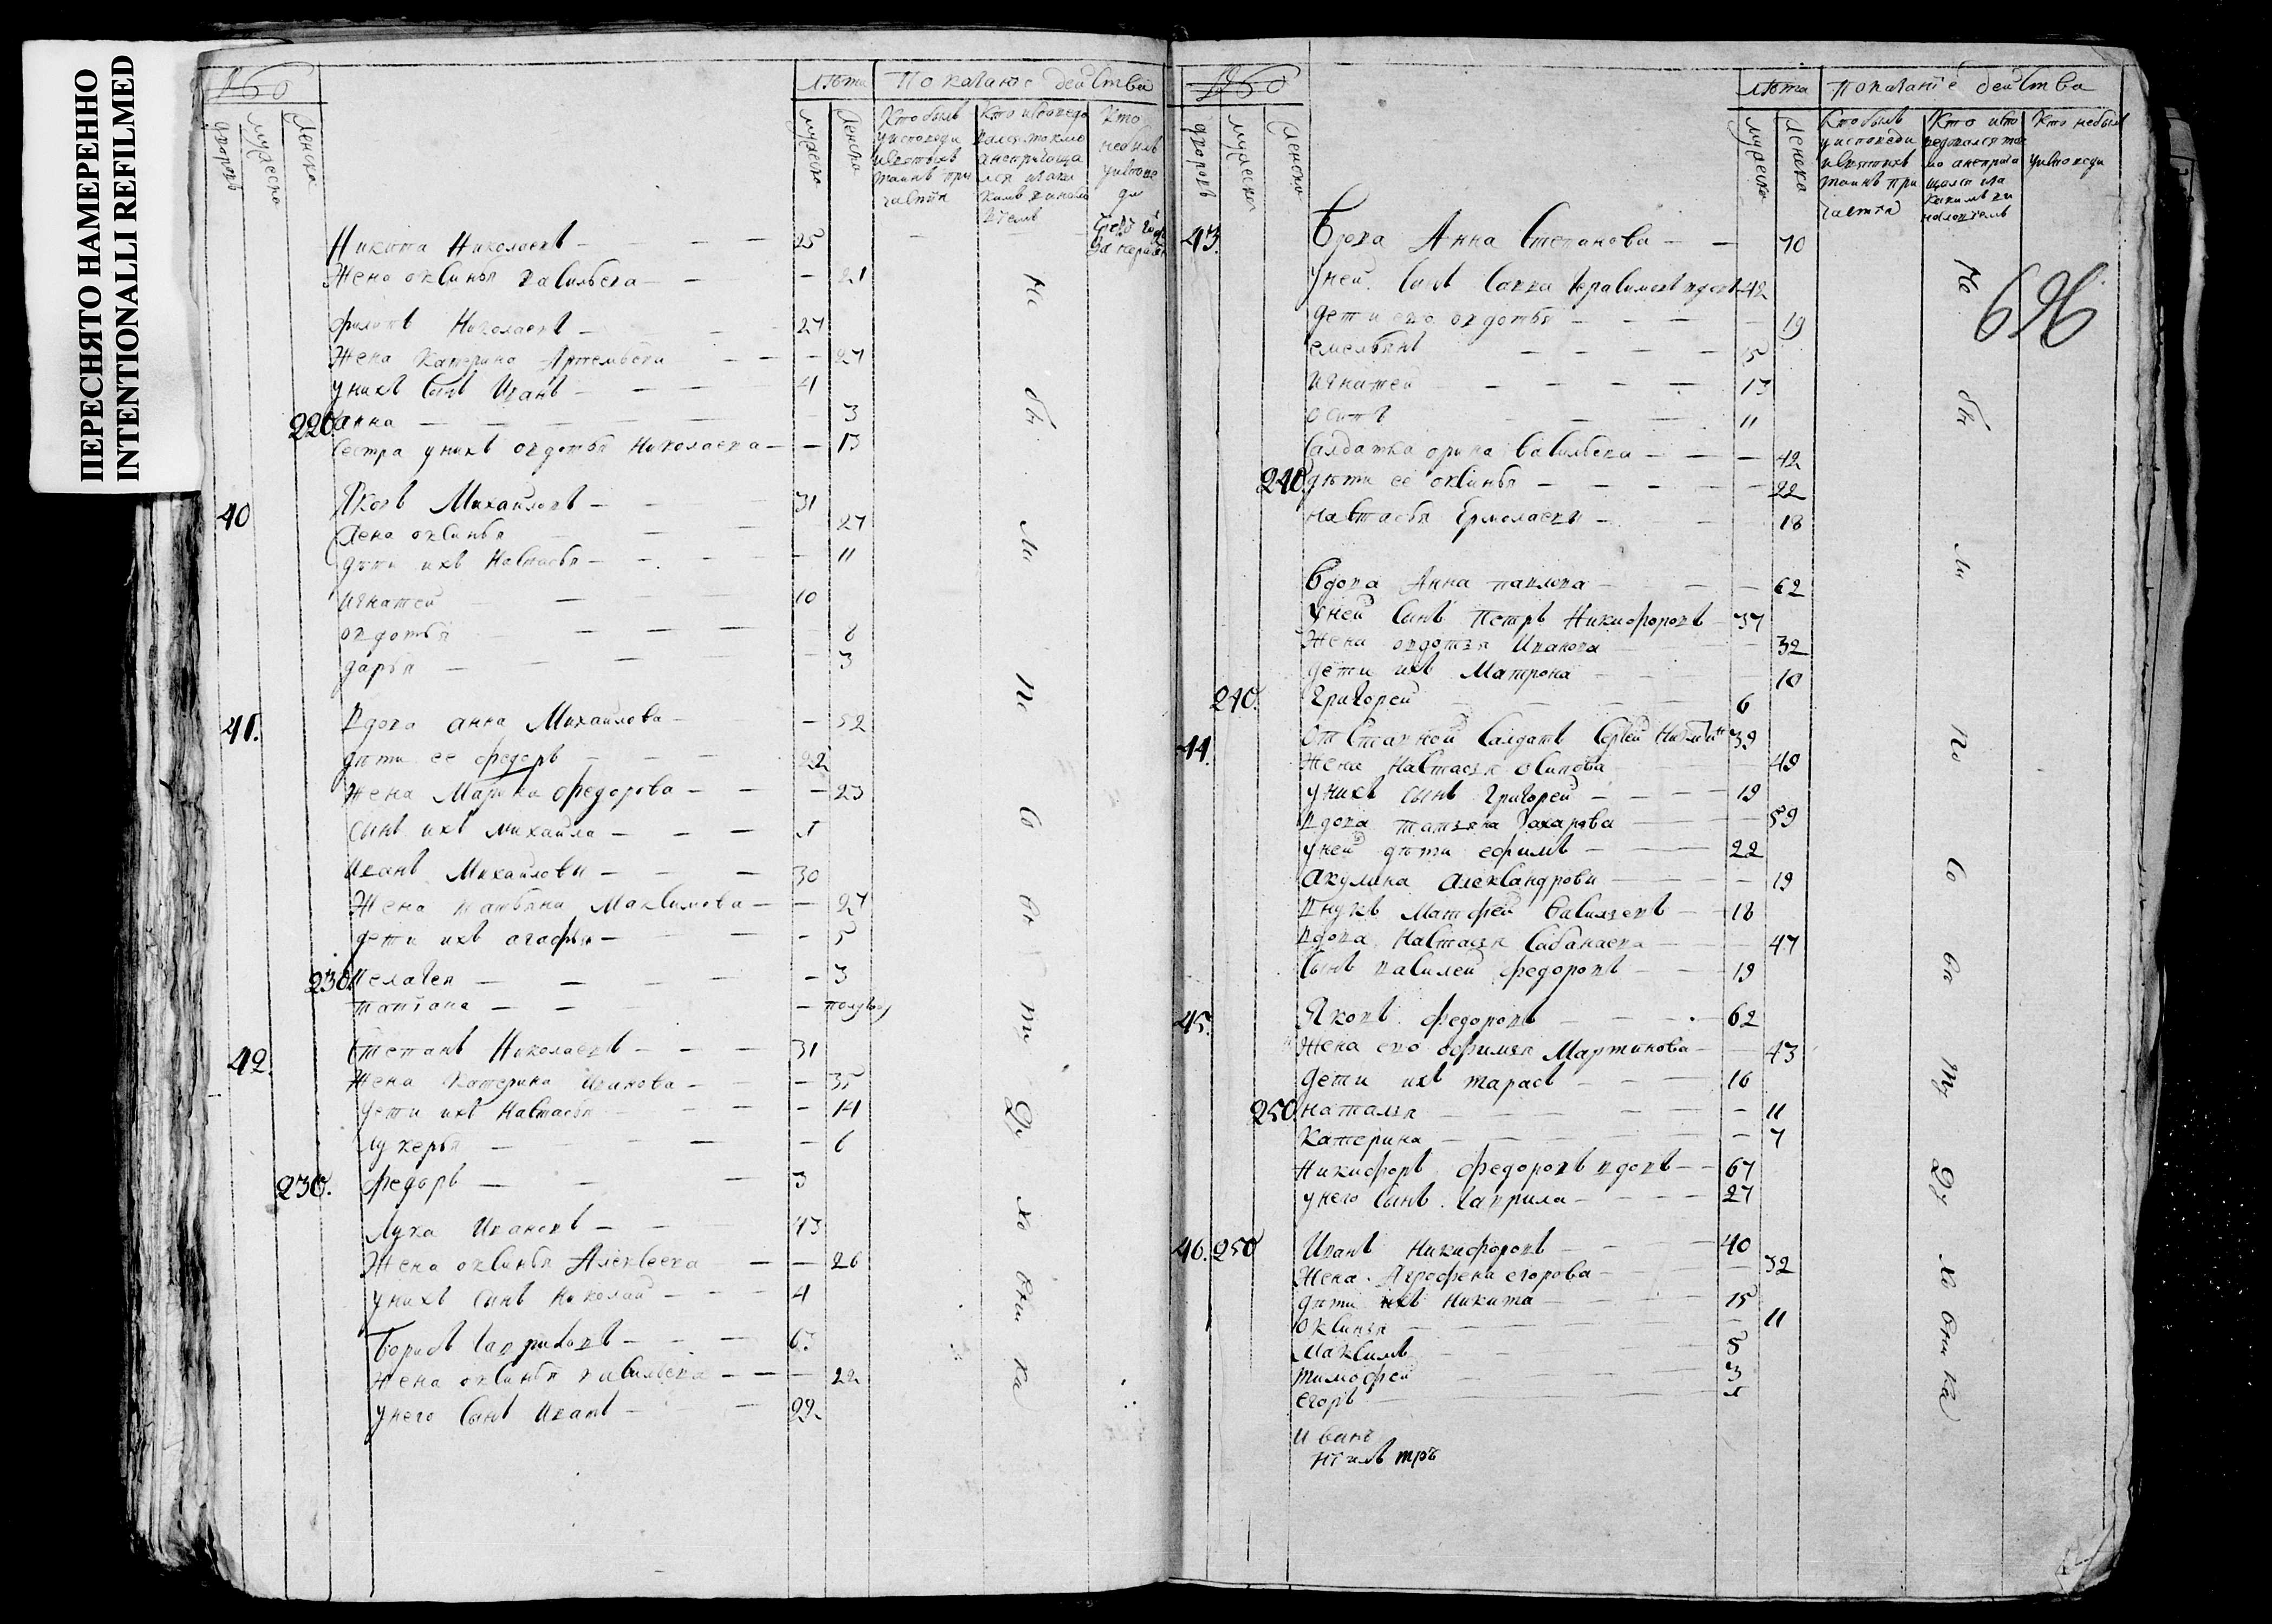 ПЕРЕСНЯТО НАМЕРЕННО
INTENTIONALLI REFILMED
лѣта Показание действа
дворовъ
мужеска
женска
мужеска
женска
Кто былъ у исповеди и святыхъ таинъ при частïи
Кто исповедовался токмо а не приобщался и за каким виналогiемъ
Кто не былъ у исповеди
Никита Николаевъ — 25
Жена оксинья васильева — 21
филипъ Николаевъ — 27
Жена Катерина Артемьева — 27
у нихъ сынъ Иванъ — 4
220 анна — 3
сестра у нихъ овдотья Николаева — 13
40 Яковъ Михайловъ — 31
Жена оксинья — 27
дѣти ихъ Настасья — 11
игнатей — 10
овдотья — 8
дарья — 3
41. вдова анна Михайлова — 52
дѣти ее федоръ — 22
Жена Марина федорова — 23
сынъ ихъ михайла — 1
иванъ Михайловъ — 30
Жена татьяна Максимова — 27
дети ихъ агафья — 5
230 пелагея — 3
татiана — полугоду
42. Степанъ Николаевъ — 31
Жена Катерина иванова — 35
дети ихъ Настасья — 14
лукерья — 6
230. федоръ — 3
Лука Ивановъ — 43
Жена оксинья Алексеева — 26
у нихъ сынъ николай — 4
Борисъ гавриловъ — 67
Жена оксинья васильева — 22
у него сынъ Иванъ — 22
Не бы ли по со от ту ду хо вни ка
лѣта показанiе действа
дворовъ
мужеска
женска
мужеска
женска
Кто былъ у исповеди и святыхъ таинъ при частïи
Кто исповедовался токмо а не приобщался и за каким виналогiемъ
Кто не былъ у исповеди
696
43. Вдова Анна Степанова — 70
у ней сынъ Савва герасимовъ вдовъ 42
дети его овдотья — 19
емельянъ — 15
игнатей — 13
осипъ — 11
салдатка орина васильева — 42
240. дѣти ее оксинья — 22
настасья Ермолаева — 18
Вдова Анна павлова — 62
у ней сынъ Петръ Никифоровъ — 37
Жена овдотья Иванова — 32
дети ихъ Матрона — 10
240. григорей — 6
44. отставной салдатъ Сергей 39
Жена Настасья осипова — 49
у нихъ сынъ григорей — 19
вдова татьяна Захарова — 59
у ней дѣти ефимъ — 22
акулина александрова — 19
внукъ Матфей васильевъ — 18
вдова Настасья Саванаева — 47
сынъ василей федоровъ — 19
45. Яковъ федоровъ — 62
Жена его офимья Мартинова — 43
дети ихъ тарасъ — 16
250. наталья — 11
катерина — 7
Никифоръ федоровъ вдовъ — 67
у него сынъ гаврила — 27
46. 250 Иванъ Никифоровъ — 40
Жена Агрофена егорова — 32
дѣти ихъ Никита — 15
оксинья — 11
Максимъ — 5
тимофей — 3
егоръ — 1
иванъ
Не бы ли по со от ту ду хо вни ка